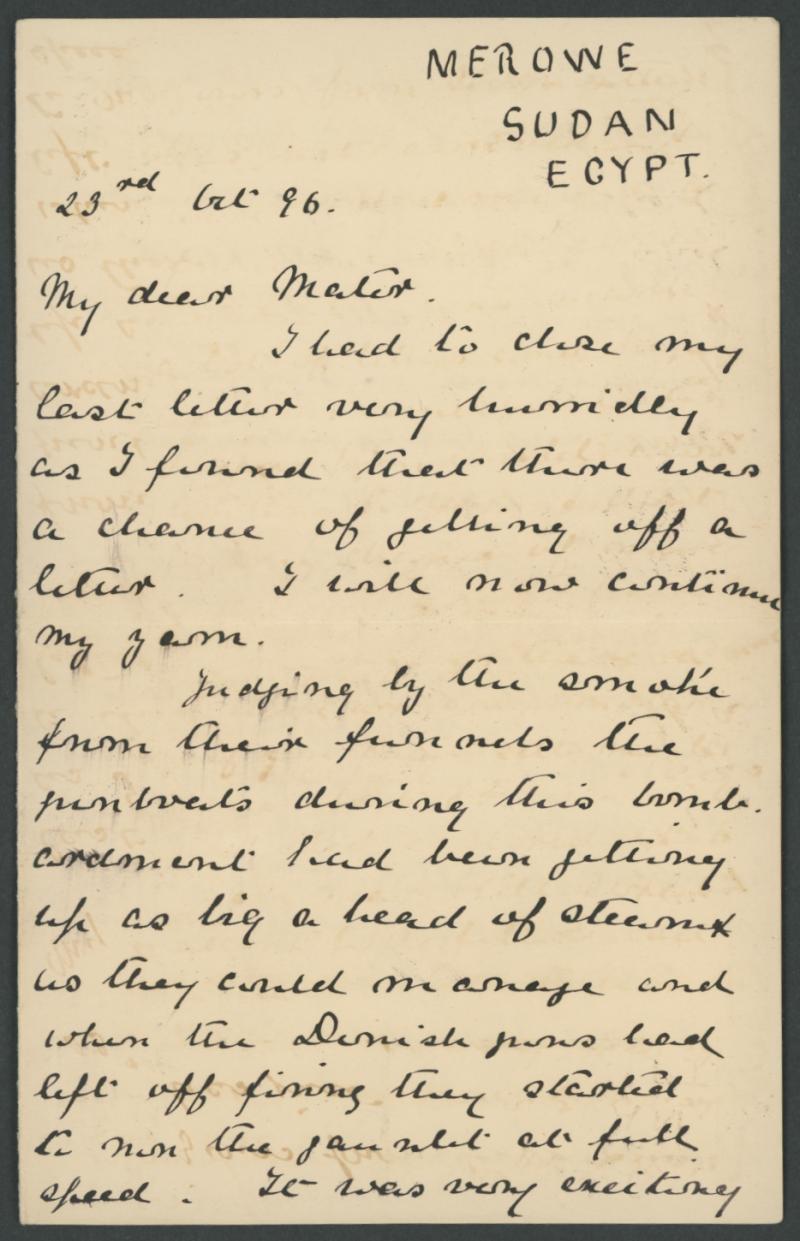 MEROWE
SUDAN
EGYPT.
23rd Oct 96.
My dear Mater.
I had to close my
last letter very hurridly
as I found that there was
a chance of getting off a
letter. I will now continue
my yarn.
Judging by the smoke
from their funnels the
gunboats during this bomb-
ardment had been getting
up as big a head of steam
as they could manage and
when the Dervish guns had
left off firing they started
to run the gauntlet at full
speed. It was very exciting